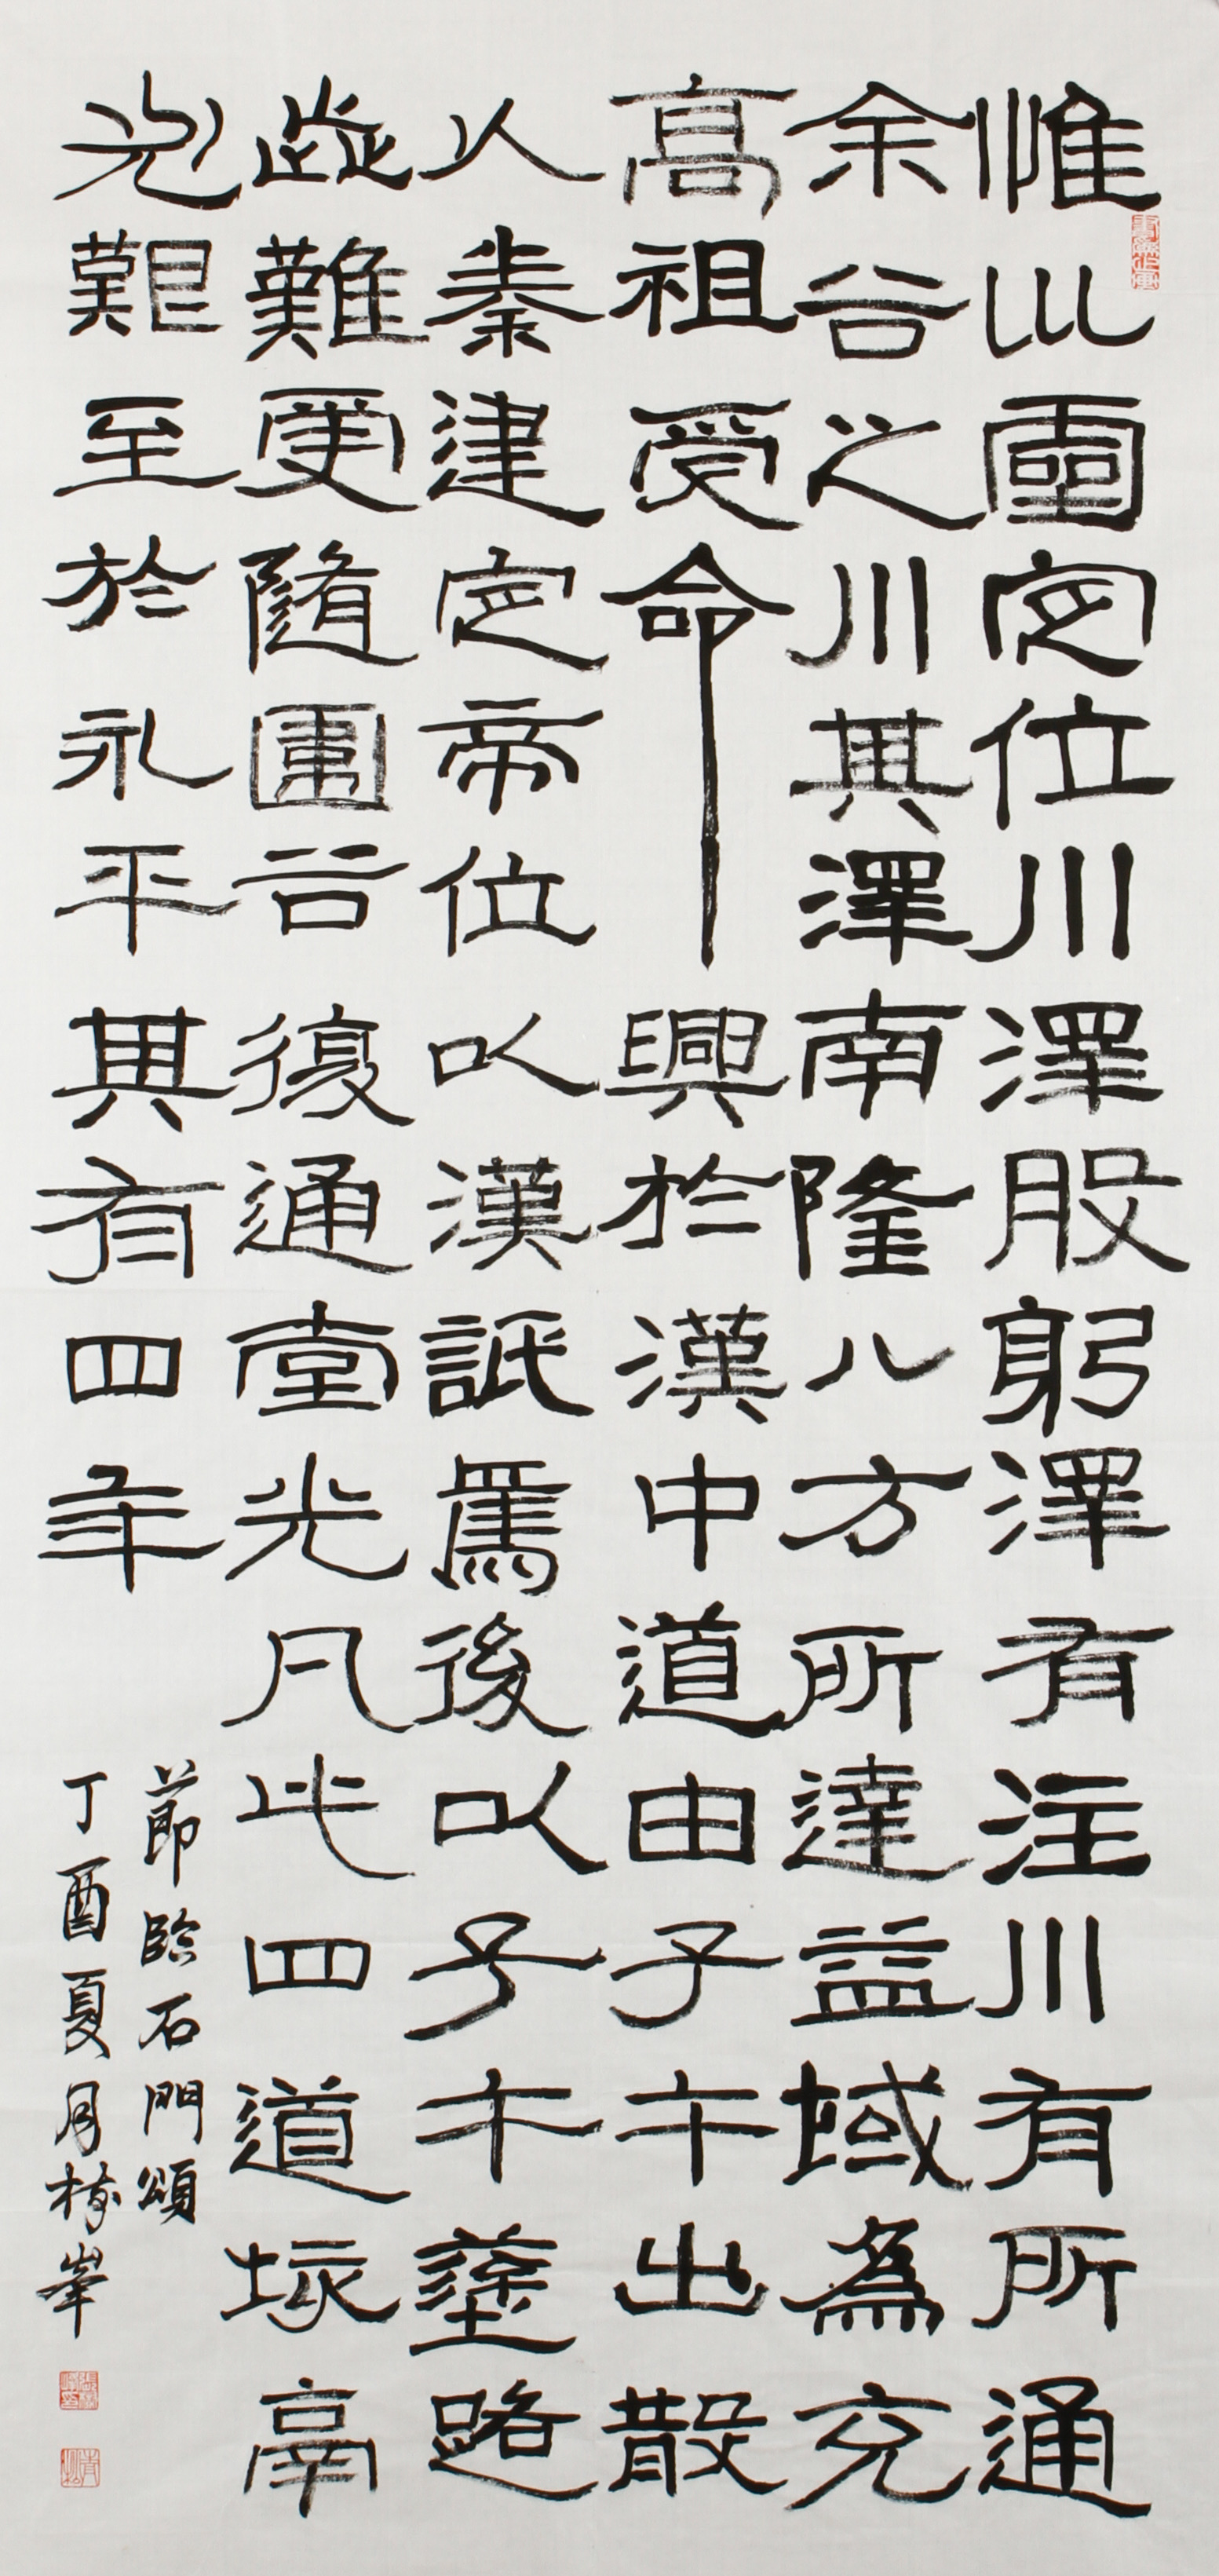 惟巛靈定位川澤股躬澤有注川有所通
余谷之川其澤南隆八方所達益域為充
高祖受命興於漢中道由子午出散
入秦建定帝位以漢詆焉後以子午塗路
歮難更隨圍谷復通堂光凡此四道垓鬲
尤艱至於永平其有四年
節臨石門頌
丁酉夏月峯